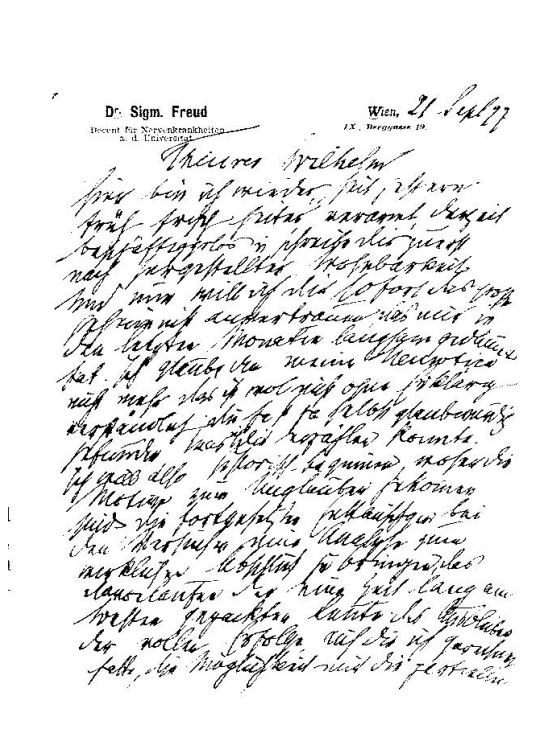 Dr. Sigm. Freud
Docent für Nervenkrankheiten
a. d. Universität.
Wien, 21 Sept 97
IX., Berggasse 19.
Theurer Wilhelm
Hier bin ich wieder, seit gestern
früh, frisch, heiter, verarmt, derzeit
beschäftigungslos u schreibe dir zuerst
nach hergestellter Wohnbarkeit
Und nun will ich dir sofort das große
Geheimniß anvertrauen, das mir in
den letzten Monaten langsam gedämmert
hat. Ich glaube an meine Neurotica
nicht mehr. das ist wol nicht ohne Erklärung
verständlich, du hast ja selbst glaubwürdig
gefunden was ich dir erzählen konnte.
Ich will also historisch beginnen, woher die
Motive zum Unglauben gekommen
sind. die fortgesetzten Enttäuschungen bei
den Versuchen eine Analyse zum
wirklichen Abschluß zu bringen, das
davonlaufen der eine Zeit lang am
besten gepackten Leute, das Ausbleiben
der vollen Erfolge, auf die ich gerechnet
hatte, die Möglichkeit mir die partiellen